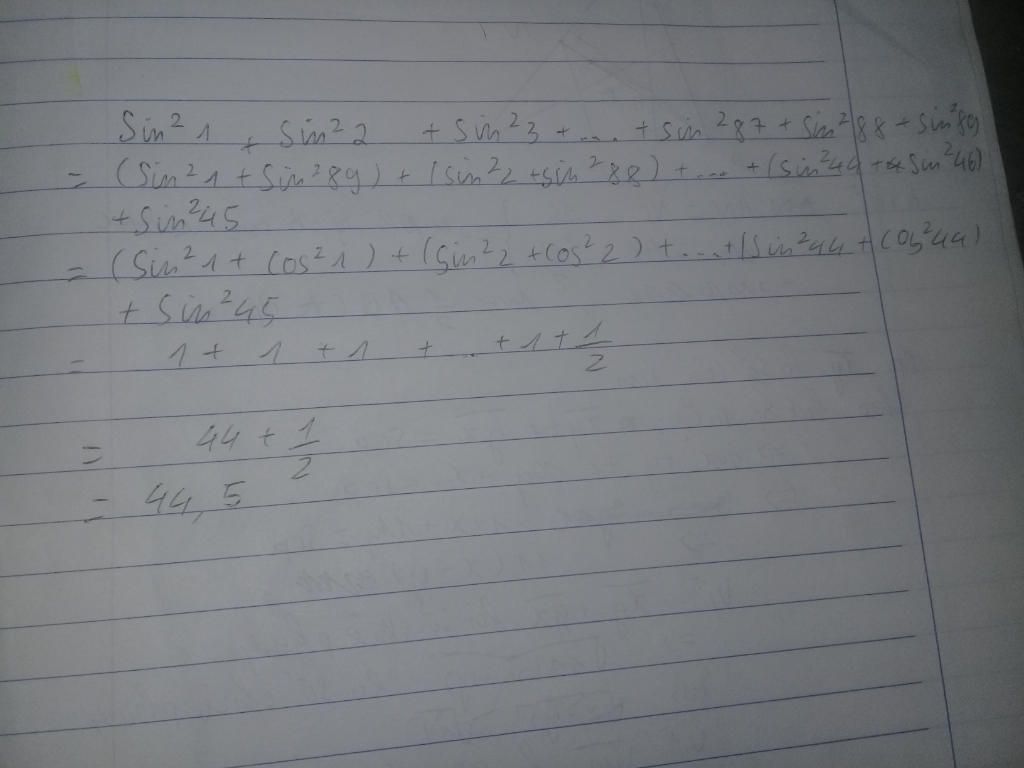 Sin²1 + Sin²2 + Sin²3 + ... + Sin²87 + Sin²88 + Sin²89
= (Sin²1 + Sin²89) + (Sin²2 + sin²88) + ... + (Sin²44 + Sin²46)
+ Sin²45
= (Sin²1 + Cos²1) + (Sin²2 + Cos²2) + ... + (Sin²44 + Cos²44)
+ Sin²45
= 1 + 1 + 1 + ... + 1 + 1/2
= 44 + 1/2
= 44,5